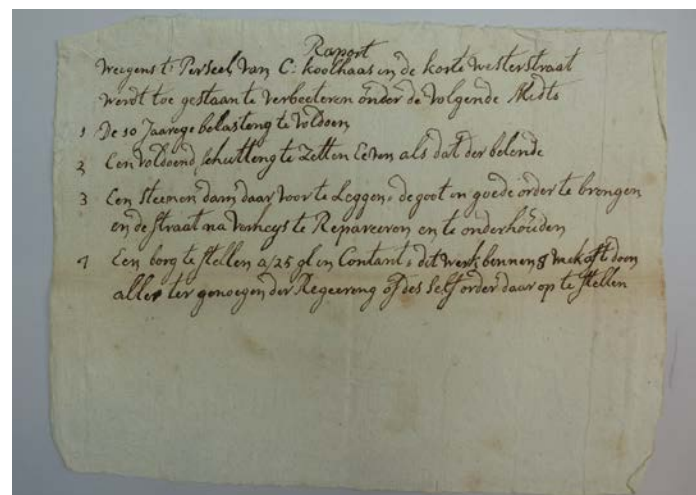 Raport
weegens t: Perseel, van C: koolhaas in de korte westerstraat
werdt toe gestaan te verbeeteren onder de volgende Midts
1 De 10 Jaarege belasteng te voldoen
2 Een voldoend, schutteng te Zetten Eeven als dat der belende
3 Een steenen dam daar voor te Leggen, de goot in goede order te brengen
en de straat na vereys te Repareeren en te onderhouden
4 Een borg te stellen a/25 gl in Contant, dit werk bennen 8 week af te doen
alles ter genoegen der Regeereng of des selfs order daar op te stellen